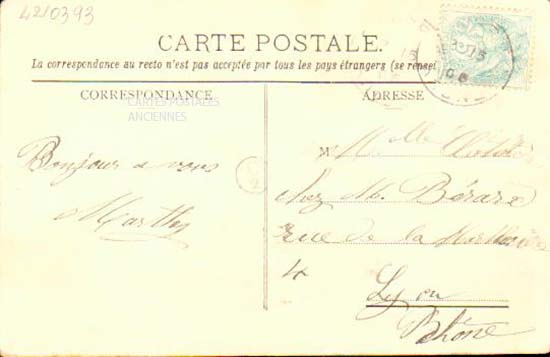 4210393
CARTE POSTALE.
La correspondance au recto n'est pas acceptée par tous les pays étrangers (se rensei
CORRESPONDANCE
ADRESSE
CARTES POSTALES
ANCIENNES
Bonjour a vous
Marthe
M elle
chez Mr. Bérard
rue de la
4
Lyon
Rhône